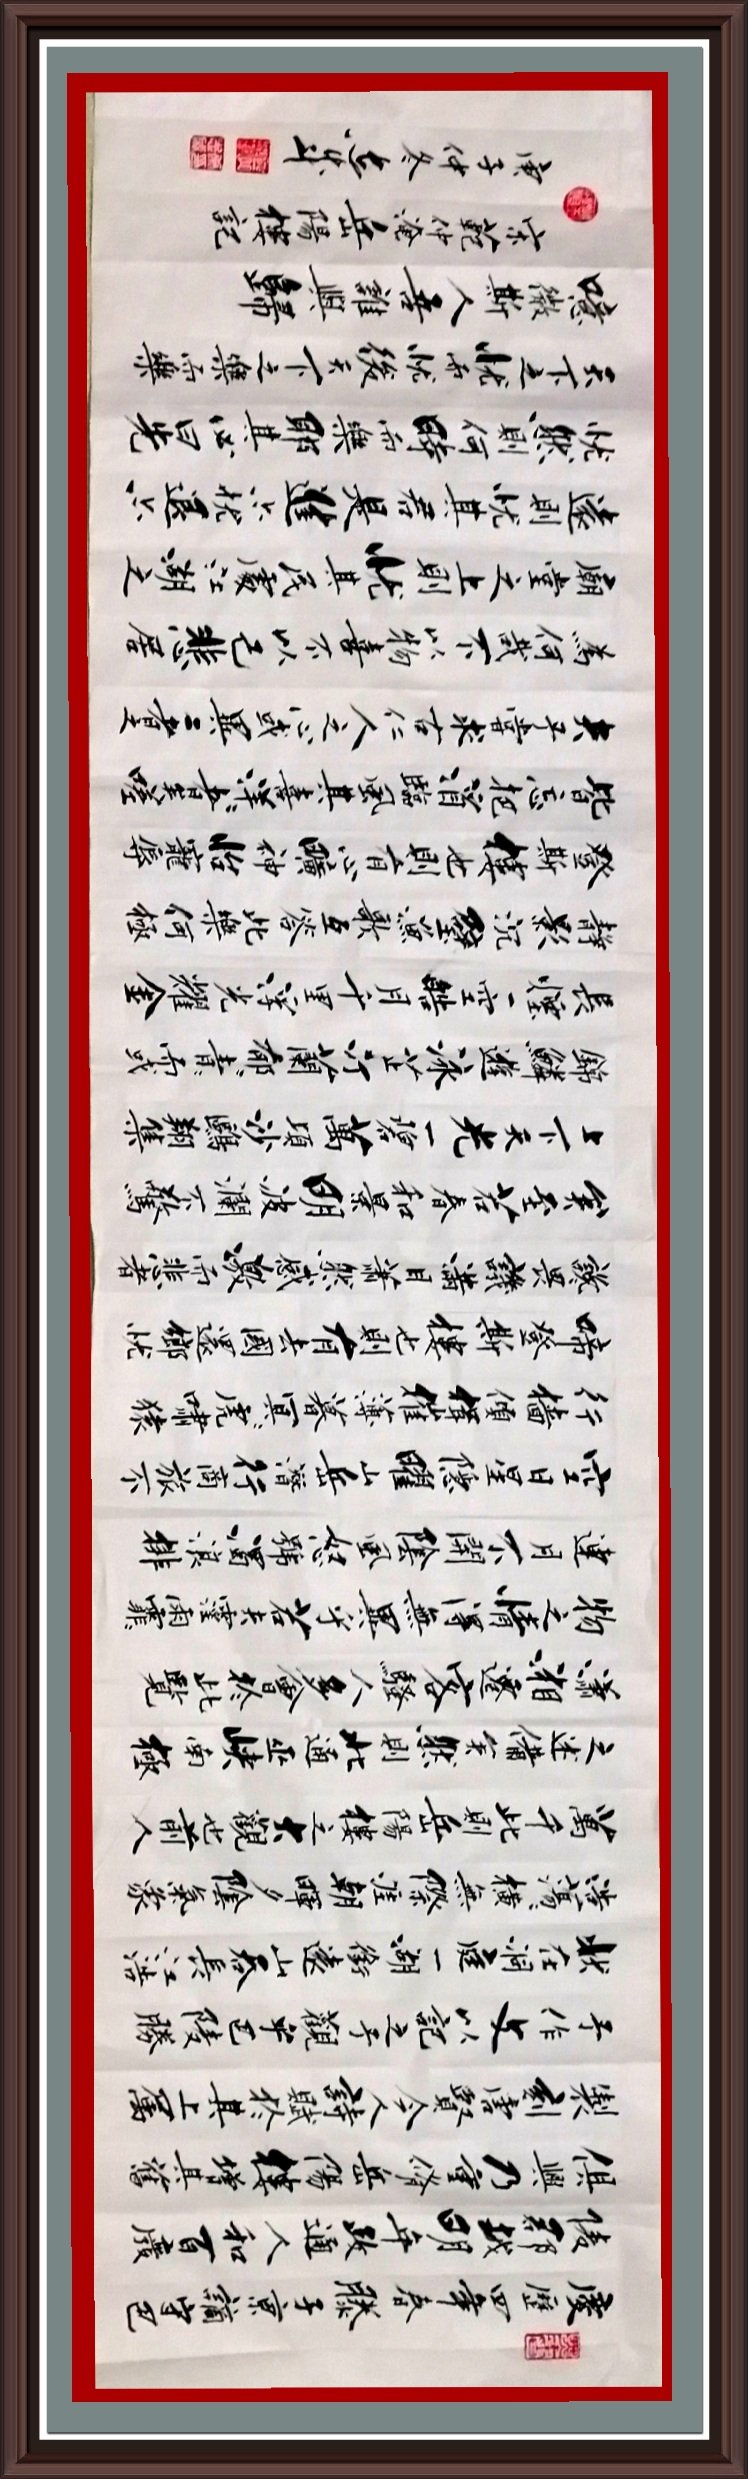 慶歷四年春滕子京謫守巴
陵郡越明年政通人和百廢
俱興乃重脩岳陽樓增其舊
製刻唐賢今人詩賦於其上屬
予作文以記之予觀夫巴陵勝
狀在洞庭一湖銜遠山吞長江浩
浩湯湯橫無際涯朝暉夕陰氣象
萬千此則岳陽樓之大觀也前人
之述備矣然則北通巫峽南極
瀟湘遷客騷人多會於此覽
物之情得無異乎若夫霪雨霏霏
連月不開陰風怒號濁浪排
空日星隱曜山岳潛行商旅不
行檣傾楫摧薄暮冥冥虎嘯猿
啼登斯樓也則有去國還鄉忧
讒畏譏滿目蕭然感極而悲者
矣至若春和景明波瀾不驚
上下天光一碧萬頃沙鷗翔集
錦鱗遊泳芷汀蘭郁郁青青而或
長煙一空皓月千里浮光耀金
靜影沉璧漁歌互答此樂何極
登斯樓也則有心曠神怡寵辱
皆忘把酒臨風其喜洋洋者矣嗟
夫予嘗求古仁人之心或異二者之
為何哉不以物喜不以己悲居
廟堂之上則忧其民處江湖之
遠則忧其君是進亦忧退亦
忧然則何時而樂耶其必曰先
天下之忧而忧後天下之樂而樂
噫微斯人吾誰與歸
宋範仲淹岳陽樓記
庚子仲冬